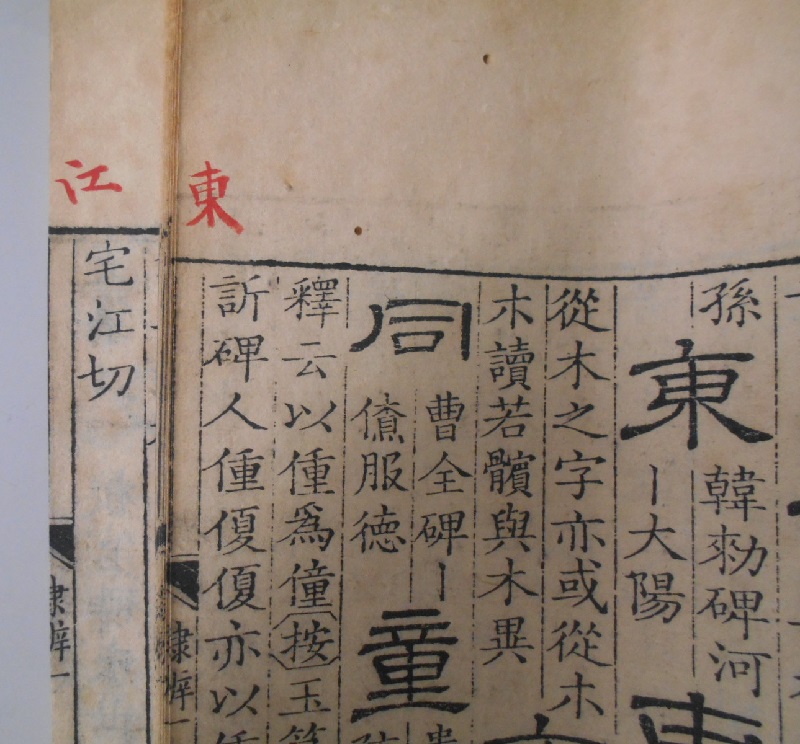 東
江
孫
東
韓勑碑河
丨大陽
從木之字亦或從朩
朩讀若髕與木異
同
曹全碑丨
僚服德
童
釋云以偅爲僮按玉
訢碑人偅
亦以
隸辨一
宅江切
隸辨一